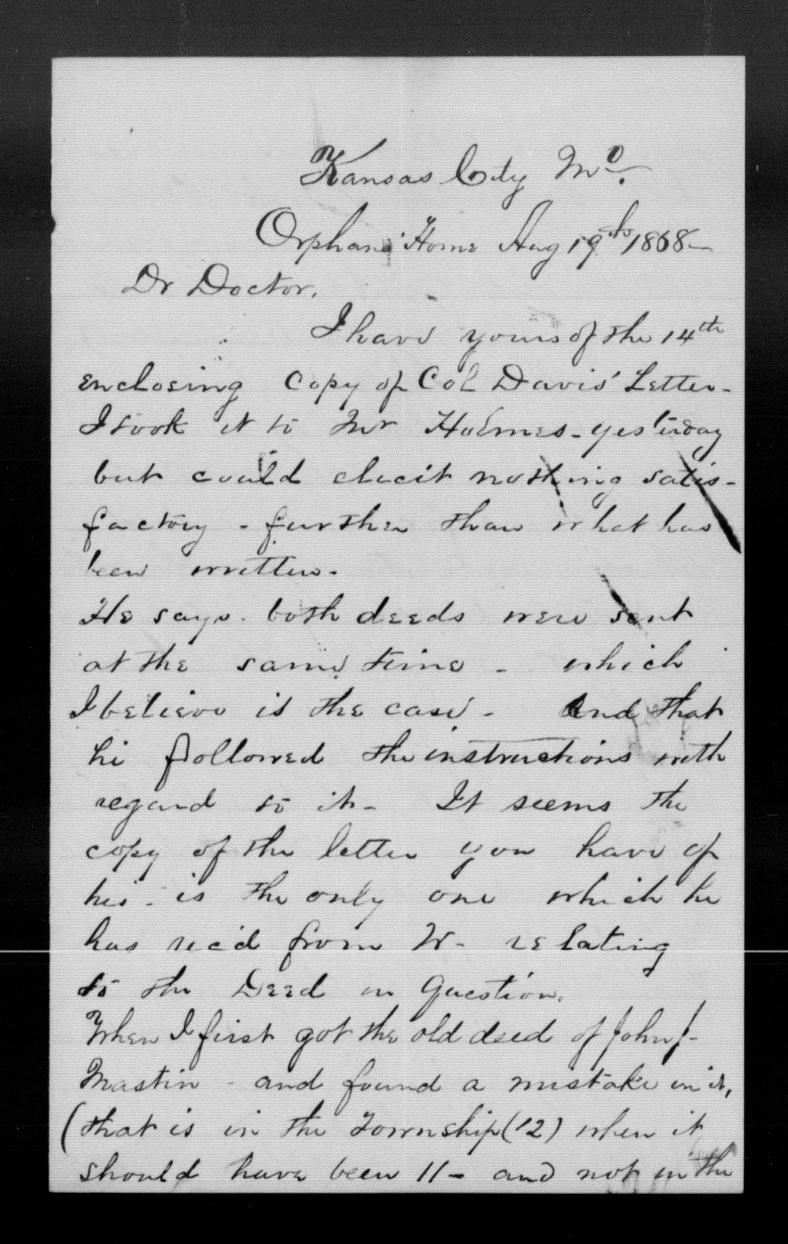 Kansas City Mo.
Orphans' Home Aug 19th 1868-
Dr Doctor,
I have yours of the 14th
enclosing Copy of Col Davis' Letter-
I took it to Mr Holmes-yesterday
but could elicit nothing satis-
factory - further than what has
been written-
He says- both deeds were sent
at the same time - which
I believe is the case - And that
he followed the instructions with
regard to it- It seems the
copy of the letter you have of
his - is the only one which he
has rec'd from W- relating
to the Deed in Question.
When I first got the old deed of John J-
Mastin - and found a mistake in it,
(that is in the Township (12) when it
should have been 11- and not in the